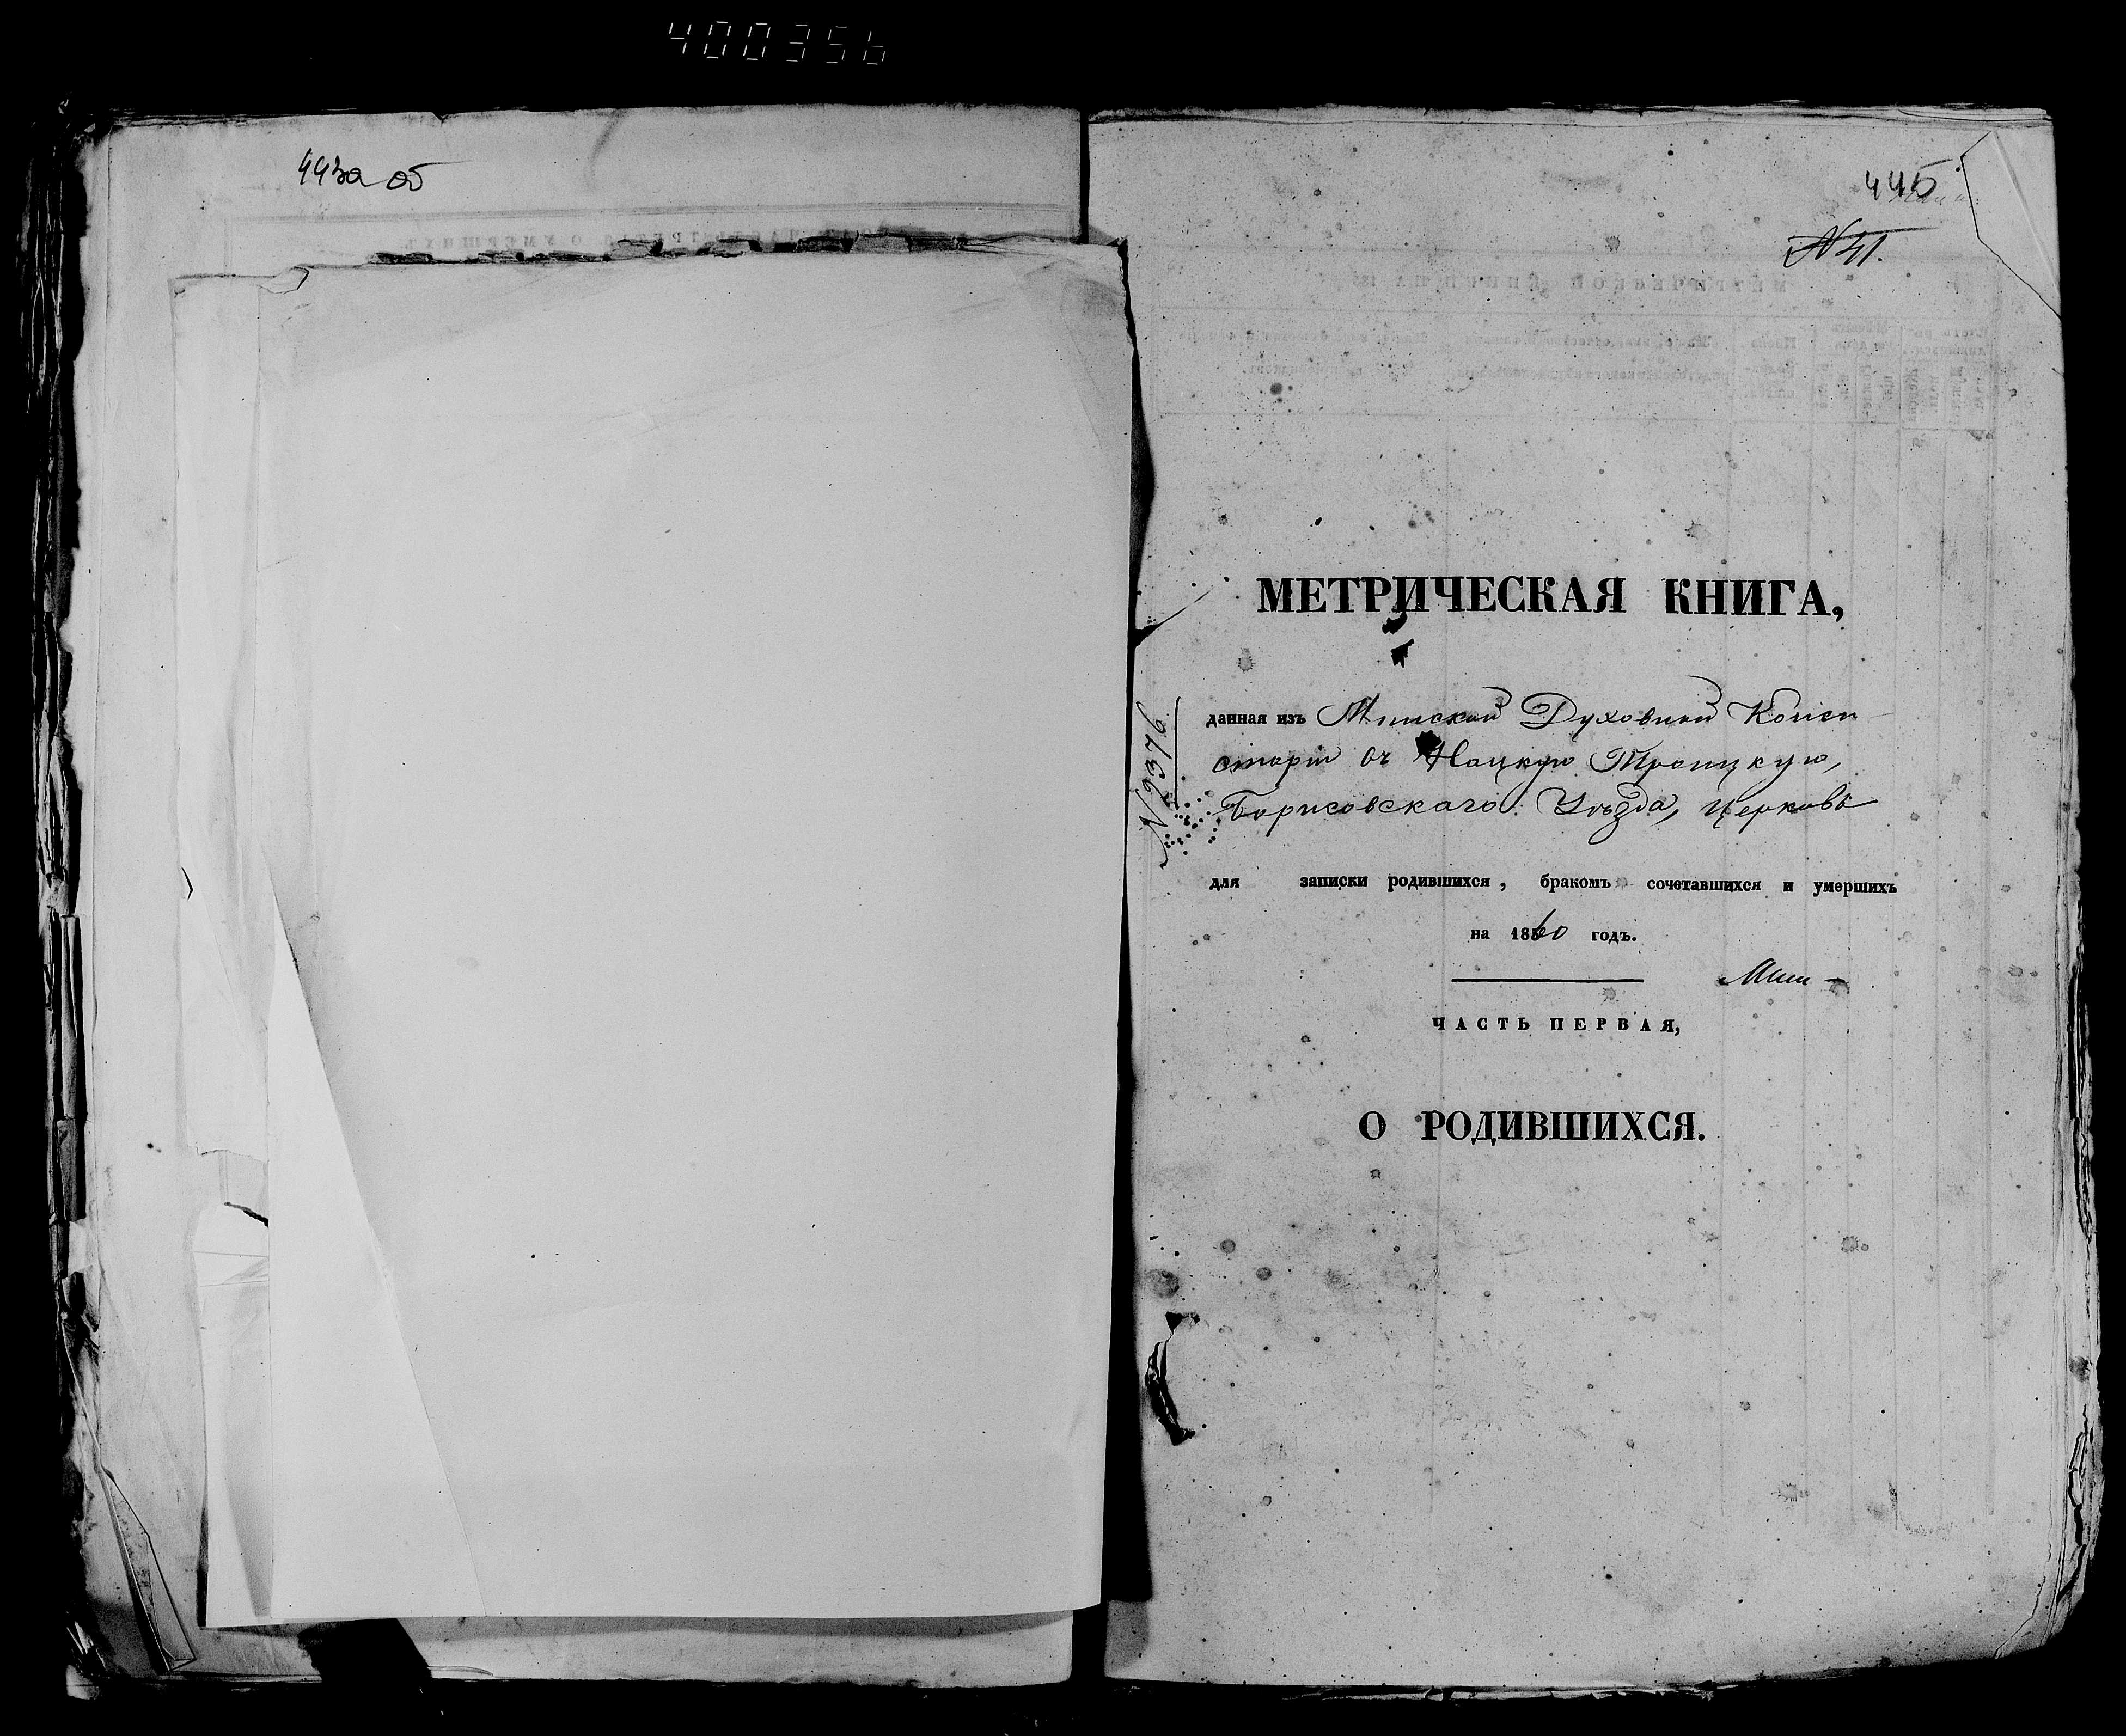 400356
443а об
445
N 41.
МЕТРИЧЕСКАЯ КНИГА,
N 9376
данная изъ Минской Духовной Конси
сторіи въ Нацкую Троицкую,
Борисовскаго Уѣзда, церковь
для записки родившихся, бракомъ сочетавшихся и умершихъ
на 1860 годъ.
ЧАСТЬ ПЕРВАЯ,
О РОДИВШИХСЯ.